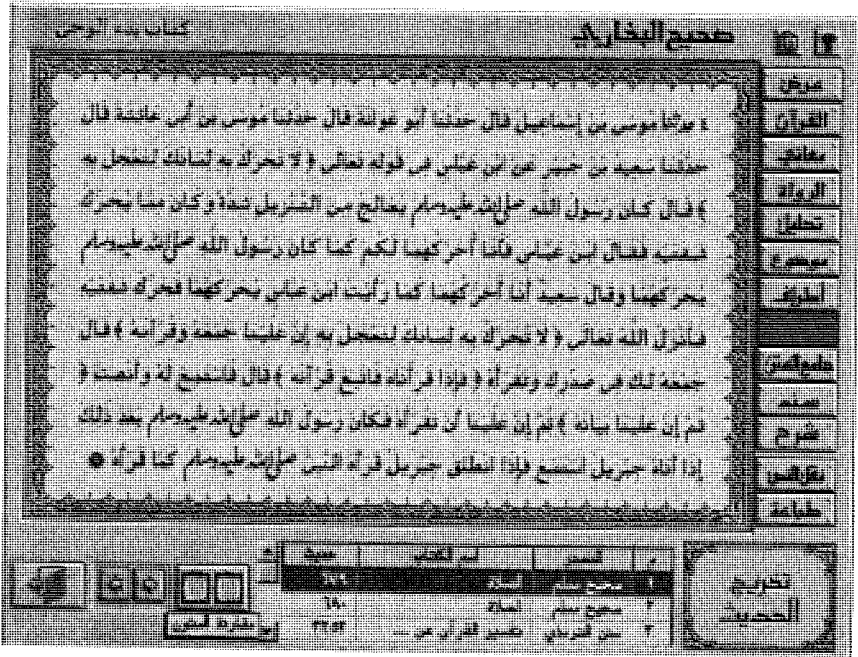 صحيح البخاري
كتاب بدء الوحي
عرض
القرآن
معاني
الرواة
تحليل
موضوع
أطراف
جامع المتن
سند
شرح
نقل النص
طباعة
٤ حدثنا موسى بن إسماعيل قال حدثنا أبو عوانة قال حدثنا موسى بن أبي عائشة قال
حدثنا سعيد بن جبير عن ابن عباس في قوله تعالى ﴿ لا تحرك به لسانك لتعجل به
﴾ قال كان رسول الله صلى الله عليه وسلم يعالج من التنزيل شدة وكان مما يحرك
شفتيه فقال ابن عباس فأنا أحركهما لكم كما كان رسول الله صلى الله عليه وسلم
يحركهما وقال سعيد أنا أحركهما كما رأيت ابن عباس يحركهما فحرك شفتيه
فأنزل الله تعالى ﴿ لا تحرك به لسانك لتعجل به إن علينا جمعه وقرآنه ﴾ قال
جمعه لك في صدرك وتقرأه ﴿ فإذا قرأناه فاتبع قرآنه ﴾ قال فاستمع له وأنصت ﴿
ثم إن علينا بيانه ﴾ ثم إن علينا أن تقرأه فكان رسول الله صلى الله عليه وسلم بعد ذلك
إذا أتاه جبريل استمع فإذا انطلق جبريل قرأه النبي صلى الله عليه وسلم كما قرأه
تخريج
الحديث
م المصدر اسم الكتاب حديث
١ صحيح مسلم الصلاة ٦٧٩
٢ صحيح مسلم الصلاة ٦٨٠
٣ سنن الترمذي تفسير القرآن عن ... ٣٢٥٢
مقارنة المتون